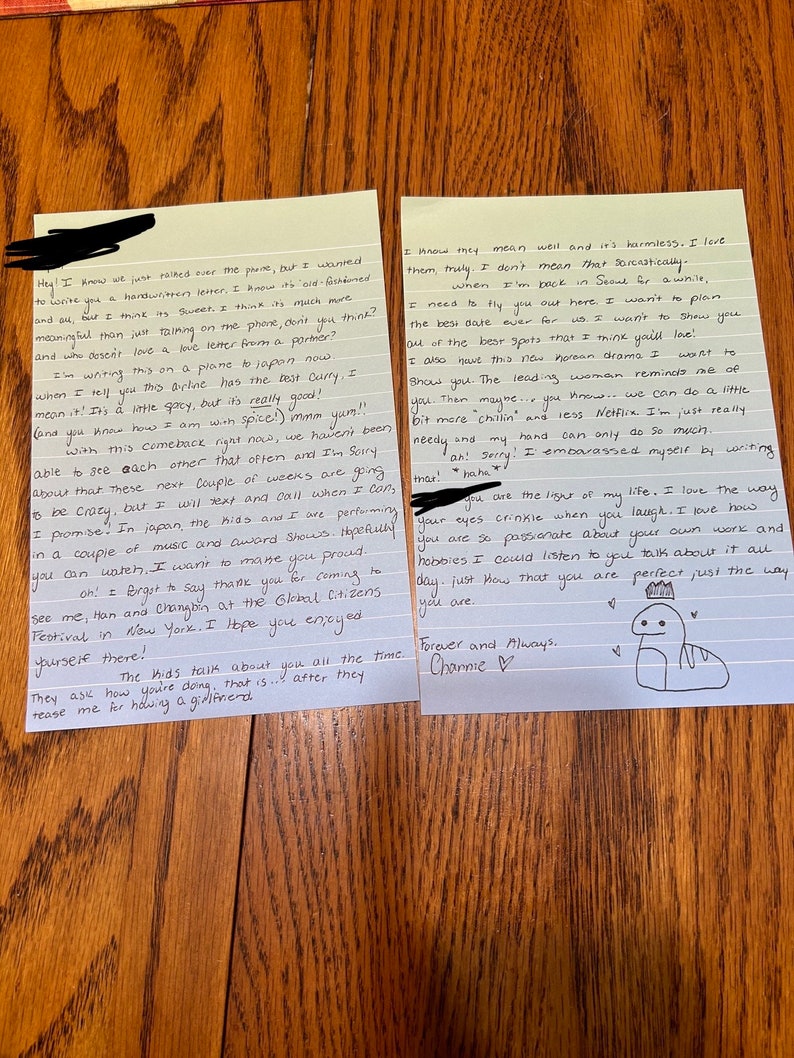 Hey! I know we just talked over the phone, but I wanted
to write you a handwritten letter. I know it's old-fashioned
and all, but I think its sweet. I think it's much more
meaningful than just talking on the phone, don't you think?
and who dosen't love a love letter from a partner?
I'm writing this on a plane to japan now.
when I tell you this airline has the best curry. I
mean it! It's a little spicy, but it's really good!
(and you know how I am with spice!) mmm yum!!
with this comeback right now, we haven't been
able to see each other that often and I'm sorry
about that these next couple of weeks are going
to be crazy, but I will text and call when I can,
I promise! In japan, the kids and I are performing
in a couple of music and award shows. Hopefully
you can watch. I want to make you proud.
oh! I forgot to say thank you for coming to
see me, Han and Changbin at the Global Citizens
Festival in New York. I Hope you enjoyed
yourself there!
The kids talk about you all the time.
They ask how you're doing, that is... after they
tease me for having a girlfriend.
I know they mean well and it's harmless. I love
them, truly. I don't mean that sarcastically.
when I'm back in Seoul for a while,
I need to fly you out here. I want to plan
the best date ever for us. I want to show you
all of the best spots that I think you'll love!
I also have this new korean drama I want to
show you. The leading woman reminds me of
you. Then maybe... you know.. we can do a little
bit more "chillin" and less Netflix. I'm just really
needy and my hand can only do so much.
ah! sorry! I embarassed myself by writing
that! *haha*
you are the light of my life. I love the way
your eyes crinkle when you laugh. I love how
you are so passionate about your own work and
hobbies. I could listen to you talk about it all
day. just know that you are perfect just the way
you are.
Forever and Always.
Channie ♡